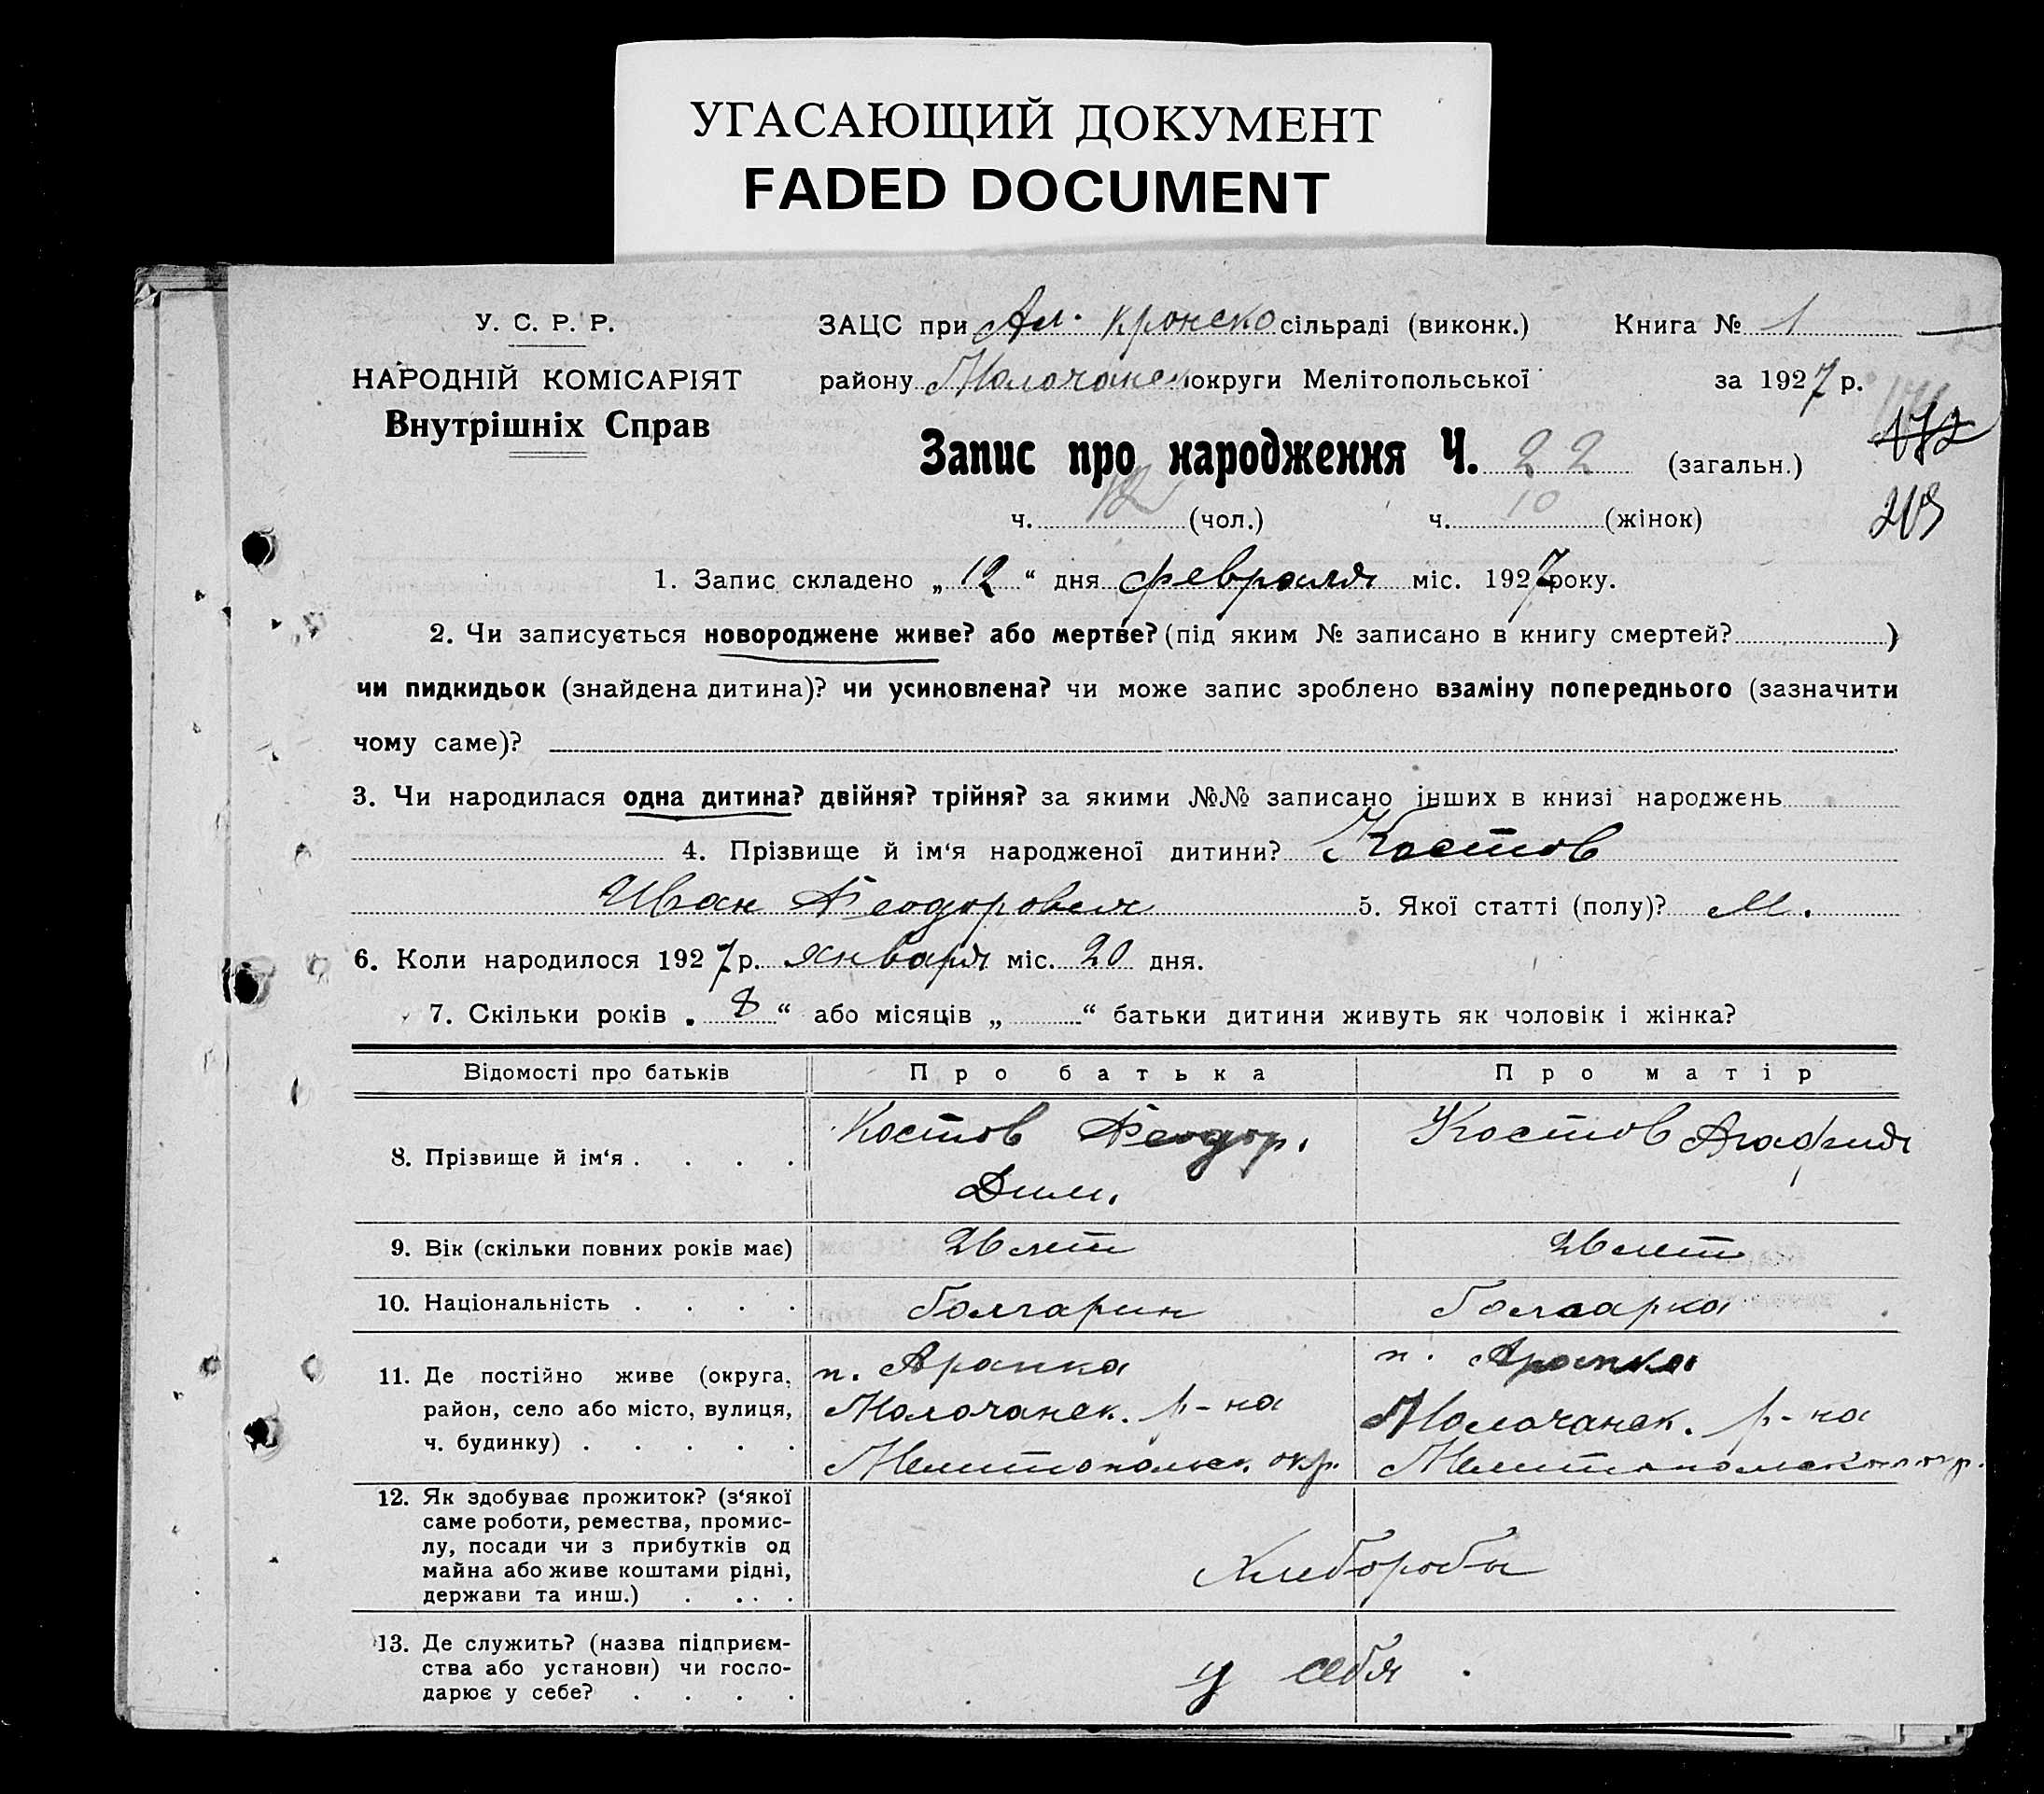 УГАСАЮЩИЙ ДОКУМЕНТ
FADED DOCUMENT
У. С. Р. Р.
НАРОДНІЙ КОМІСАРІЯТ
Внутрішніх Справ
ЗАЦС при Ал. кронско сільраді (виконк.) Книга № 1
району Молочанск округи Мелітопольської за 1927 р.
Запис про народження Ч. 22 (загальн.)
172
ч. 12 (чол.) ч. 10 (жінок)
213
1. Запис складено „ 12 “ дня февраля міс. 1927 року.
2. Чи записується новороджене живе? або мертве? (під яким № записано в книгу смертей? )
чи пидкидьок (знайдена дитина)? чи усиновлена? чи може запис зроблено взаміну попереднього (зазначити
чому саме)?
3. Чи народилася одна дитина? двійня? трійня? за якими №№ записано інших в книзі народжень
4. Прізвище й ім‘я народженої дитини? Костов
Иван Феодорович 5. Якої статті (полу)? М.
6. Коли народилося 1927 р. января міс. 20 дня.
7. Скільки років „ 8 “ або місяців „ “ батьки дитини живуть як чоловік і жінка?
Відомості про батьків Про батька Про матір
8. Прізвище й ім‘я . . . . Костов Феодор. Костов Агафия
Дим.
9. Вік (скільки повних років має) 26 лет 26 лет
10. Національність . . . . болгарин болгарка
11. Де постійно живе (округа, п. Арапка п. Арапка
район, село або місто, вулиця, Молочанск. р-на Молочанск. р-на
ч. будинку) . . . . . Мелитопольск. окр. Мелитопольской окр.
12. Як здобуває прожиток? (з‘якої
саме роботи, ремества, промис-
лу, посади чи з прибутків од
майна або живе коштами рідні, Хлеборобы
держави та инш.) . . . .
13. Де служить? (назва підприєм-
ства або установи) чи госпо- у себя.
дарює у себе? . . . .